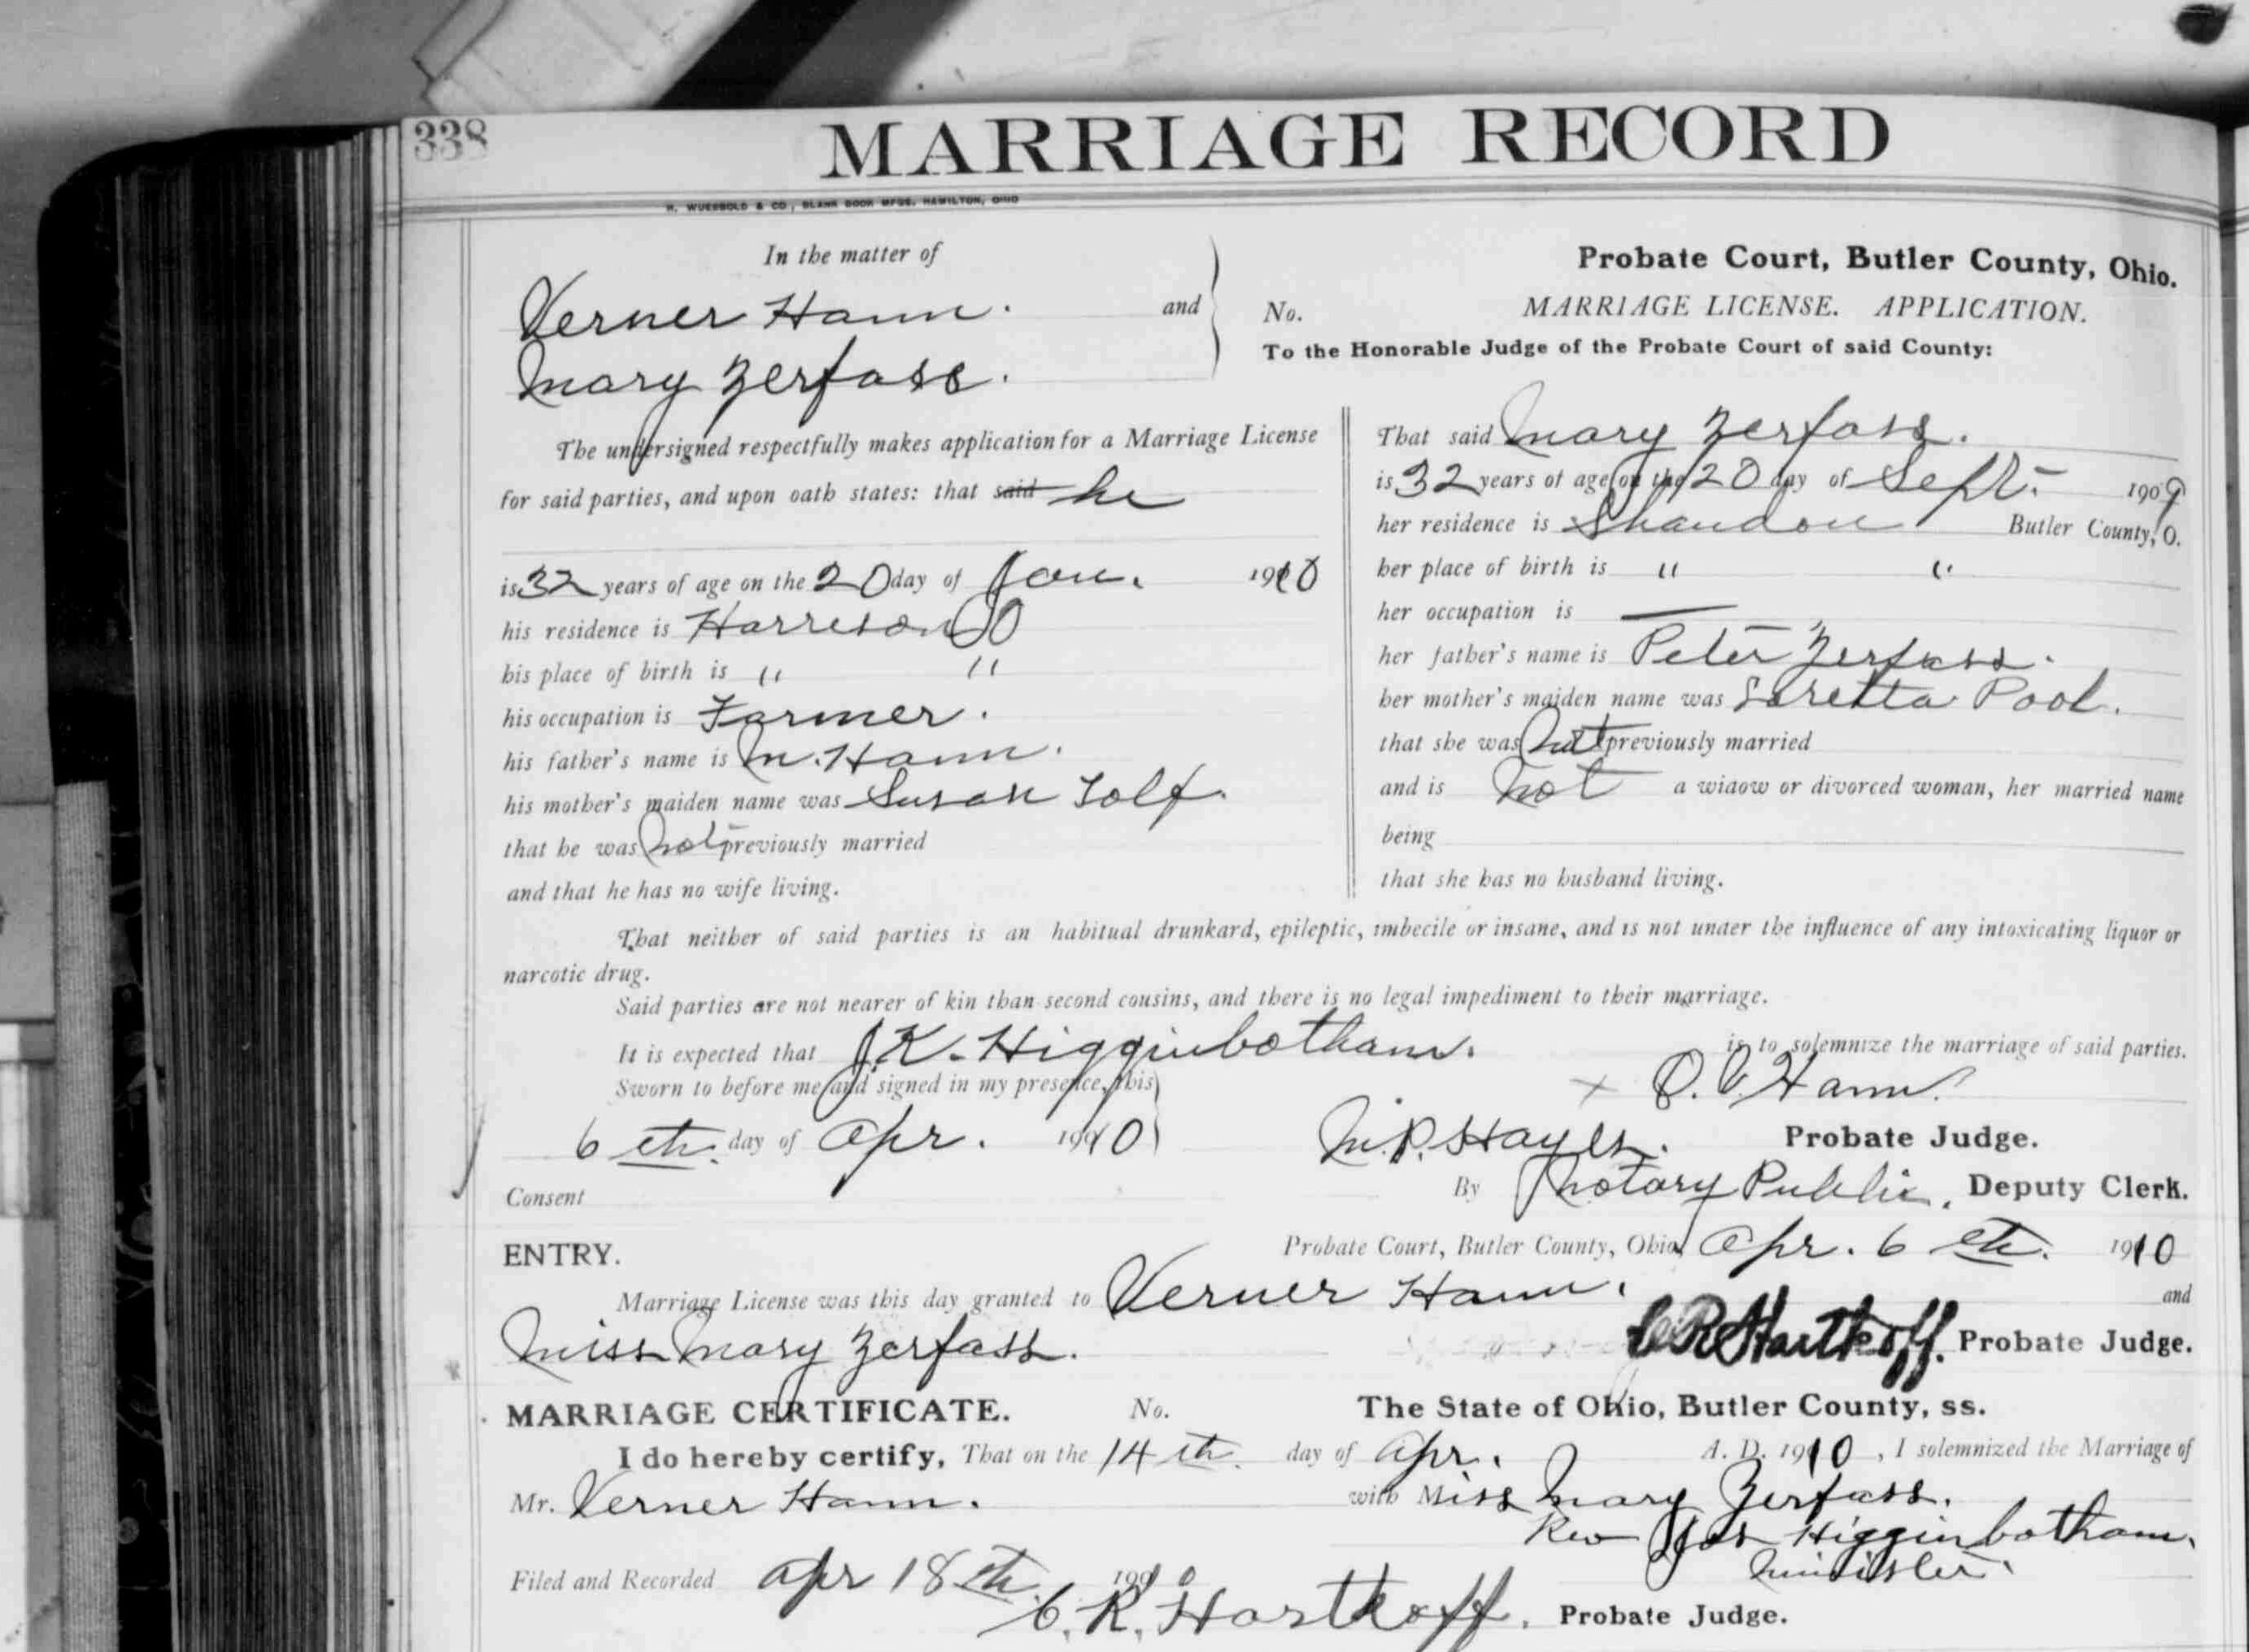 338
MARRIAGE RECORD
H. WUERBOLD & CO., BLANK BOOK MFGS. HAMILTON, OHIO
In the matter of
Verner Hann. and
Mary Zerfass.
Probate Court, Butler County, Ohio.
No. MARRIAGE LICENSE. APPLICATION.
To the Honorable Judge of the Probate Court of said County:
The undersigned respectfully makes application for a Marriage License
for said parties, and upon oath states: that said he
is 32 years of age on the 20 day of Jan. 1910
his residence is Harrison O
his place of birth is " "
his occupation is Farmer.
his father's name is M. Hann.
his mother's maiden name was Susan
that he was not previously married
and that he has no wife living.
That said Mary Zerfass.
is 32 years of age on the 20 day of Sept. 1909
her residence is Shandon Butler County, O.
her place of birth is " "
her occupation is —
her father's name is Peter Zerfass.
her mother's maiden name was Loretta Pool.
that she was not previously married
and is not a widow or divorced woman, her married name
being
that she has no husband living.
That neither of said parties is an habitual drunkard, epileptic, imbecile or insane, and is not under the influence of any intoxicating liquor or
narcotic drug.
Said parties are not nearer of kin than second cousins, and there is no legal impediment to their marriage.
It is expected that J.K. Higginbotham. is to solemnize the marriage of said parties.
Sworn to before me and signed in my presence, this x O. V. Hann.
6 th. day of Apr. 1910 M.P. Hayes. Probate Judge.
Consent By Notary Public. Deputy Clerk.
ENTRY. Probate Court, Butler County, Ohio, Apr. 6 th. 1910
Marriage License was this day granted to Verner Hann. and
Miss Mary Zerfass. C. R. Hartkoff. Probate Judge.
MARRIAGE CERTIFICATE. No. The State of Ohio, Butler County, ss.
I do hereby certify, That on the 14 th. day of Apr. A. D. 1910, I solemnized the Marriage of
Mr. Verner Hann. with Miss Mary Zerfass.
Rev Jos Higginbotham.
Minister.
Filed and Recorded Apr 18 th. 1910
C. R. Hartkoff. Probate Judge.